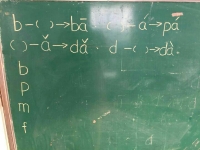 b-( )→bā ( )-á→pá
( )-ǎ→dǎ. d-( )→dà.
b
p
m
f
d